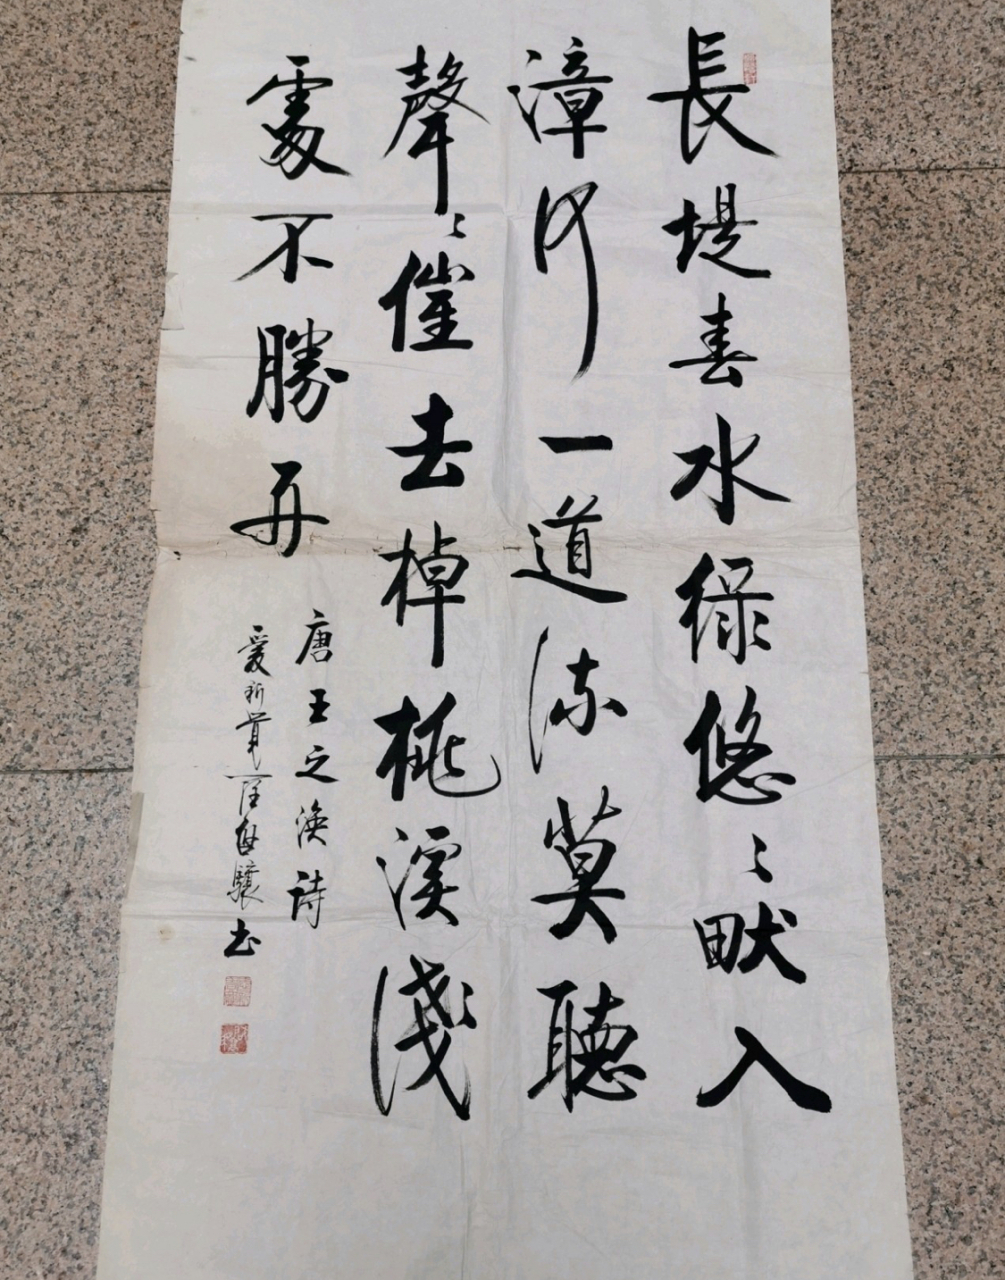 長堤春水綠悠〻畎入
漳河一道流莫聽
聲〻催去棹桃溪淺
處不勝舟
唐王之渙詩
愛新覺羅啟驤書